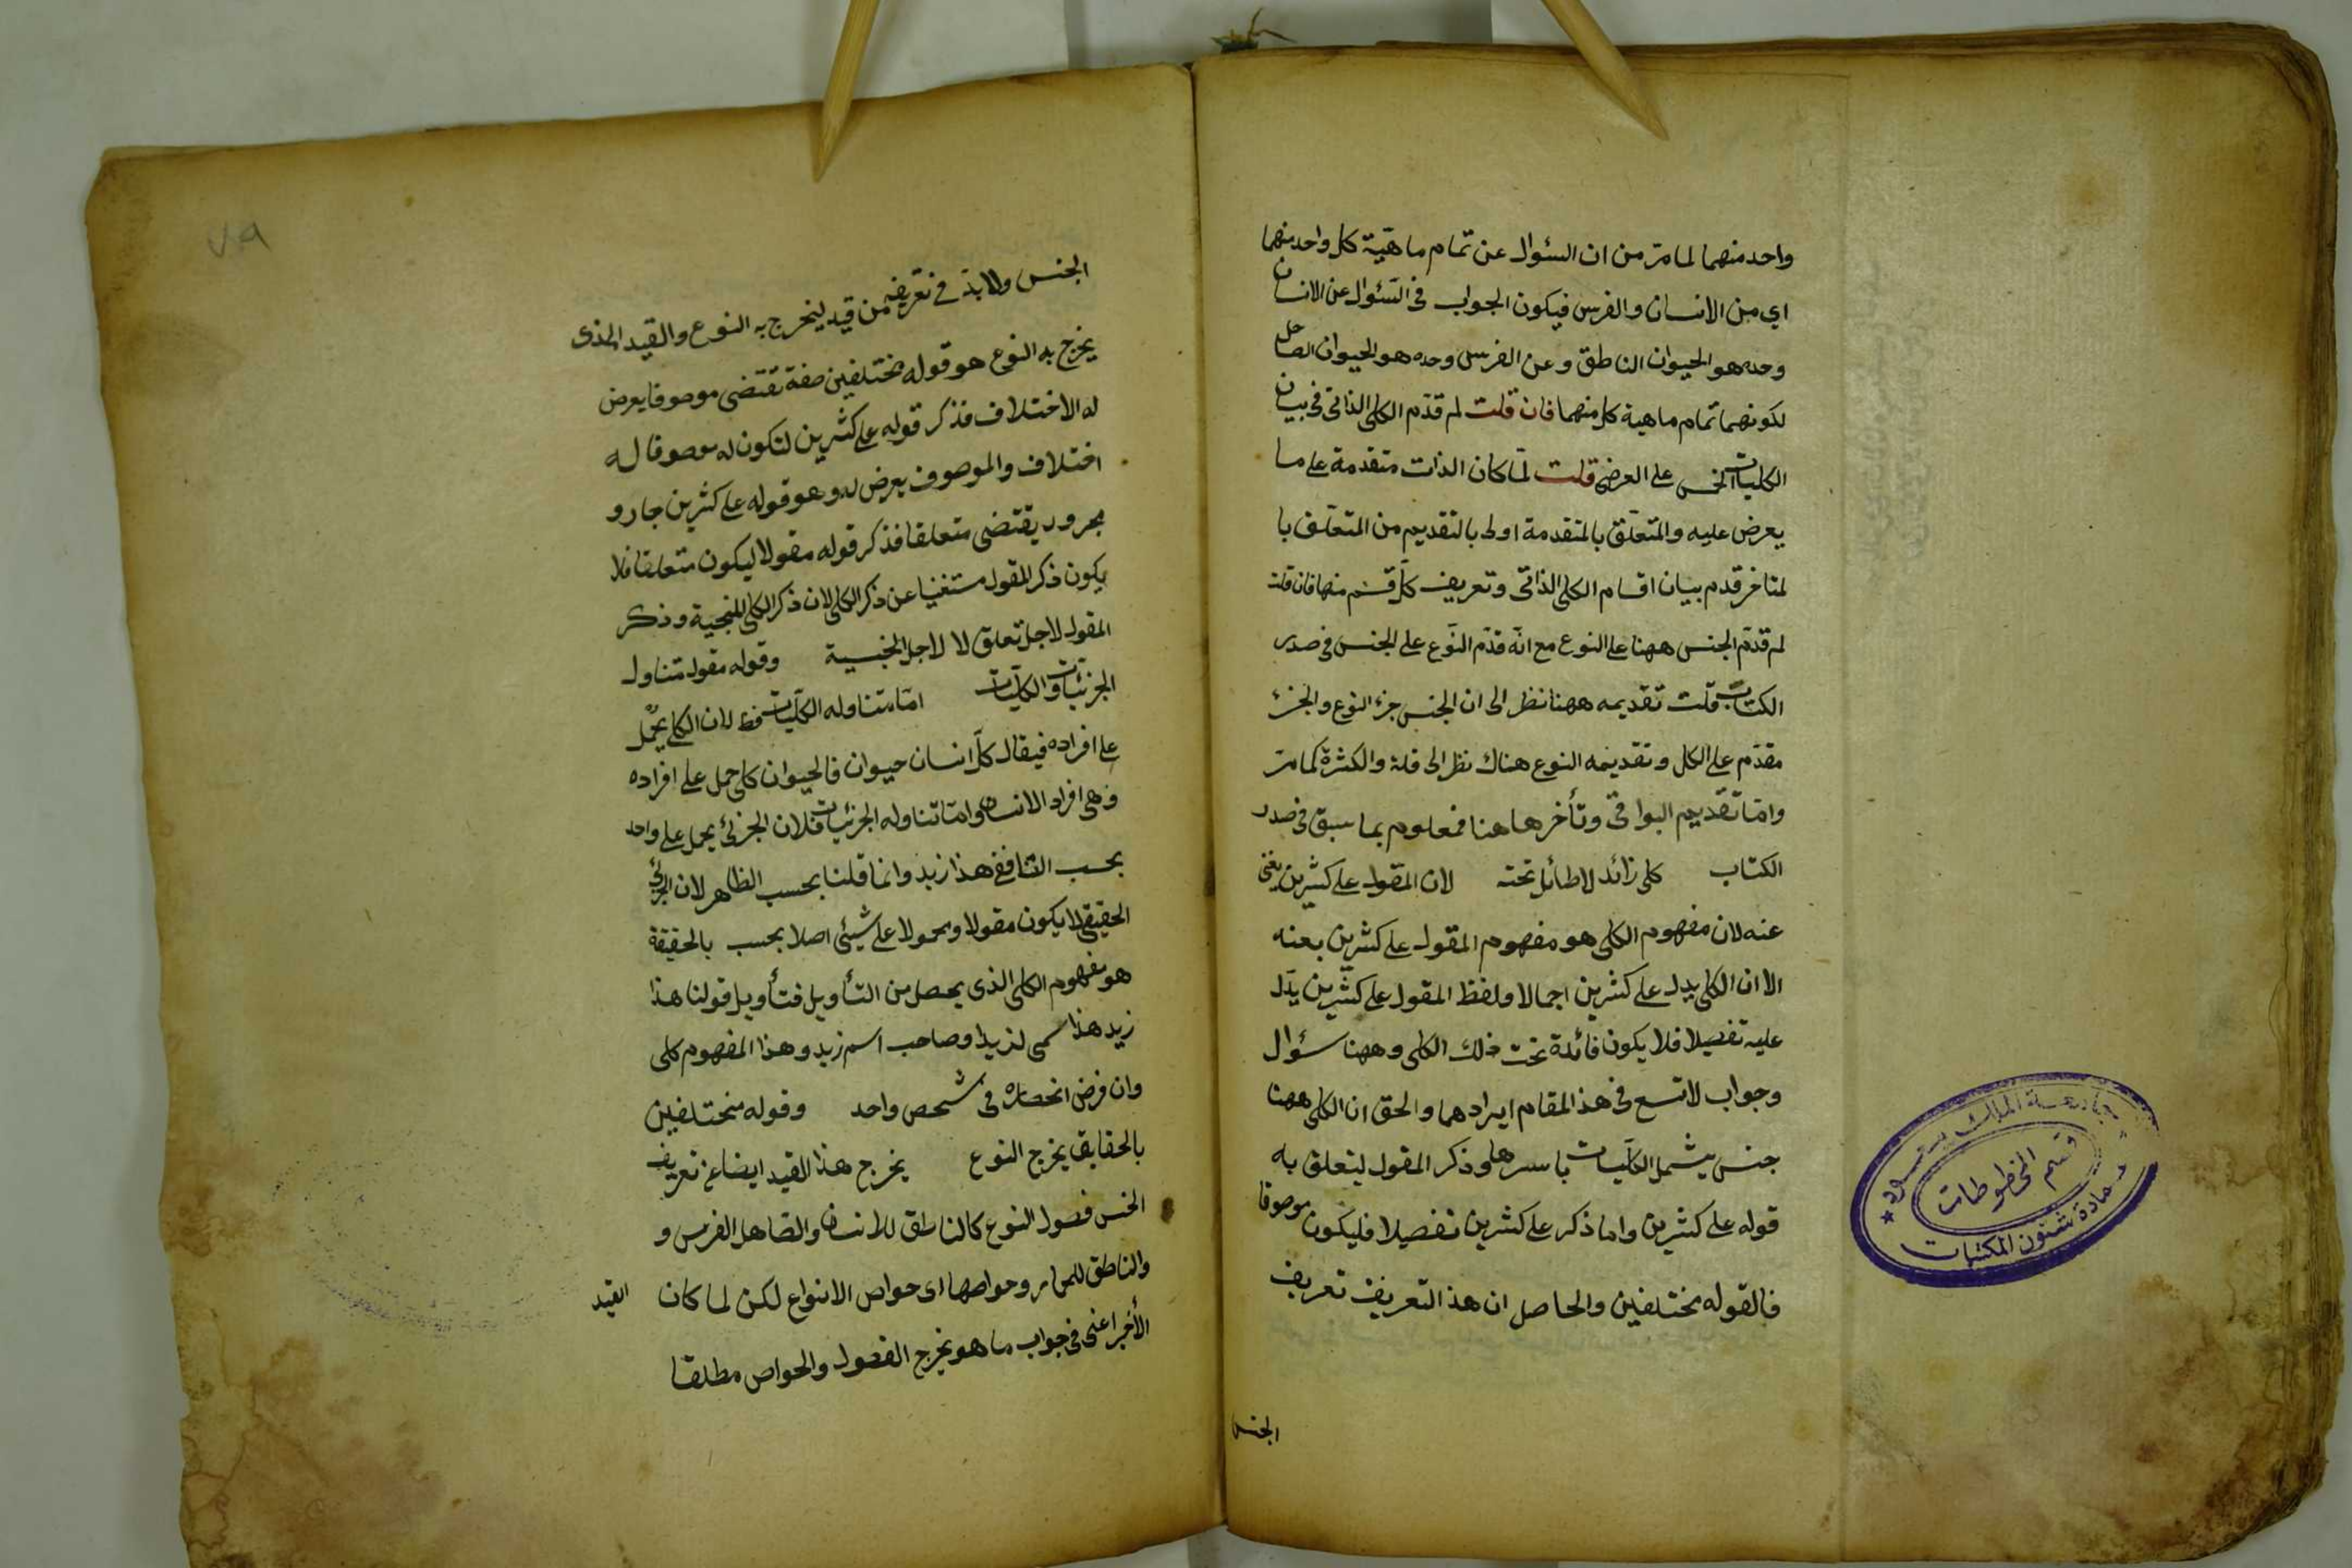 واحد منهما لما مرّ من ان السئوال عن تمام ماهيّة كل واحد منهما
اي من الانسان والفرس فيكون الجواب فى السّئوال عن الانسان
وحده هو الحيوان الناطق وعن الفرس وحده هو الحيوان الصاهل
لكونهما تمام ماهية كل منهما فان قلت لم قدّم الكلى الذاتى فى بيان
الكليات الخمس على العرضى قلت لمّا كان الذات متقدمة على ما
يعرض عليه والمتعلّق بالمتقدمة اولى بالتقديم من المتعلّق با
لمتاخر قدم بيان اقسام الكلى الذاتى وتعريف كلّ قسم منها فان قلت
لم قدّم الجنس ههنا على النوع مع انّه قدّم النّوع على الجنس فى صدر
الكتاب قلت تقديمه ههنا نظر الى ان الجنس جزء النوع والجزء
مقدّم على الكل وتقديمه النوع هناك نظر الى قلة والكثرة كما مرّ
وامّا تقديم البواقى وتأخرها هنا فمعلوم بما سبق فى صدر
الكتاب كلى زائد لا طائل تحته لان المقول على كثيرين يغنى
عنه لان مفهوم الكلى هو مفهوم المقول على كثيرين بعنه
الا ان الكلى يدل على كثيرين اجمالا ولفظ المقول على كثيرين يدّل
عليه تفصيلا فلا يكون فائدة تحت ذلك الكلى وههنا سئوال
وجواب لا تسع فى هذ المقام ايرادهما والحق ان الكلى ههنا
جنس يشمل الكلّيات باسرها وذكر المقول ليتعلق به
قوله على كثيرين واما ذكر على كثيرين تفصيلا فليكون موصوفا
فالقوله مختلفين والحاصل ان هذ التعريف تعريف
الجنس
جامعة الملك سعود
قسم المخطوطات
عمادة شئون المكتبات
٧٩
الجنس ولابدّ فى تعريفه من قيد ليخرج به النوع والقيد الذى
يخرج به النوع هو قوله مختلفين صفة تقتضى موصوفا يعرض
له الاختلاف فذكر قوله على كثيرين لتكون له موصوفا له
اختلاف والموصوف يعرض له وهو قوله على كثيرين جار و
مجرور يقتضى متعلقا فذكر قوله مقولا ليكون متعلقا فلا
يكون ذكر المقول مستغنيا عن ذكر الكلى لان ذكر الكلى للجنسية وذكر
المقول لاجل تعلق لا لاجل الجنسية وقوله مقول متناول
الجزئيّات والكلّيات امّا متناوله الكلّيات فظ لان الكلى يحمل
على افراده فيقال كلّ انسان حيوان فالحيوان كلى حمل على افراده
وهى افراد الانسان وامّا تناوله الجزئيات فلان الجزئ يحمل على واحد
بحسب الظاهر هذا زيد وانما قلنا بحسب الظاهر لان الجزئ
الحقيقى لا يكون مقولا ومحمولا على شيئ اصلا بحسب بالحقيقة
هو مفهوم الكلى الذى يحصل من التأويل فتأويل قولنا هذا
زيد هذا سمى لزيد او صاحب اسم زيد وهذا المفهوم كلى
وان فرض انحصاره فى شخص واحد وقوله مختلفين
بالحقايق يخرج النوع يخرج هذا القيد ايضا عن تعريف
الجنس فصول النوع كالناطق للانسان والصّاهل الفرس و
والناطق للحمار وخواصها اى خواص الانواع لكن لما كان القيد
الأخير اعنى فى جواب ما هو يخرج الفصول والخواص مطلقا